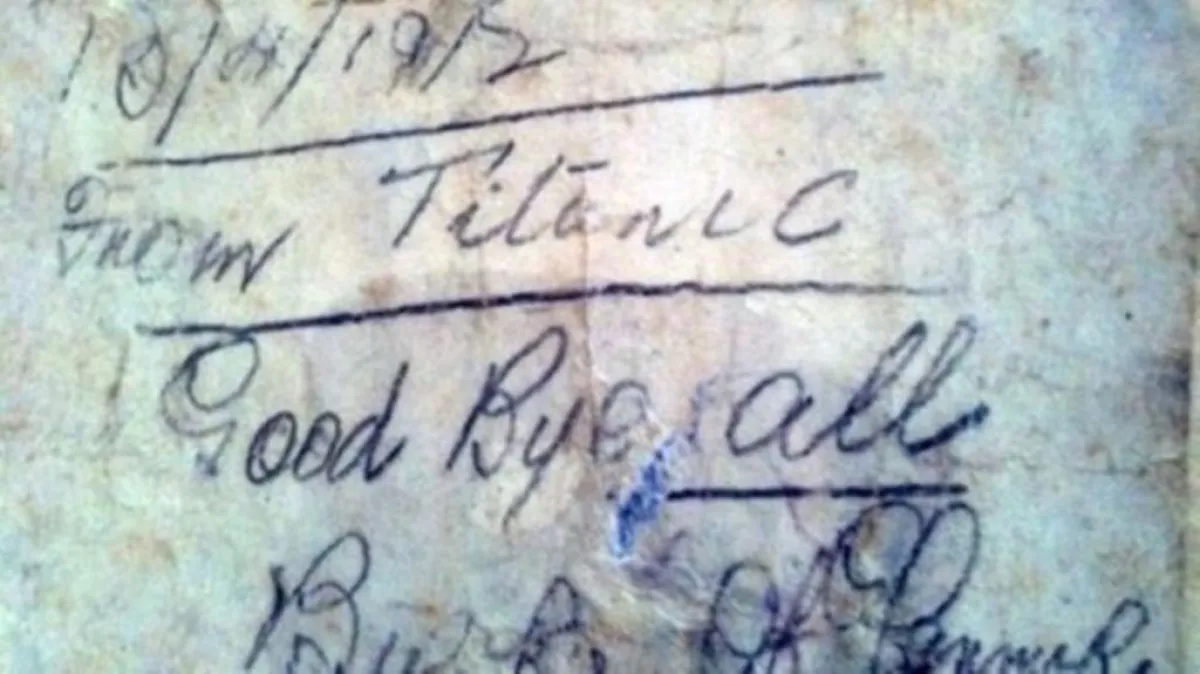 10/4/1912
From Titanic
Good Bye all
Burke Of Glanmire